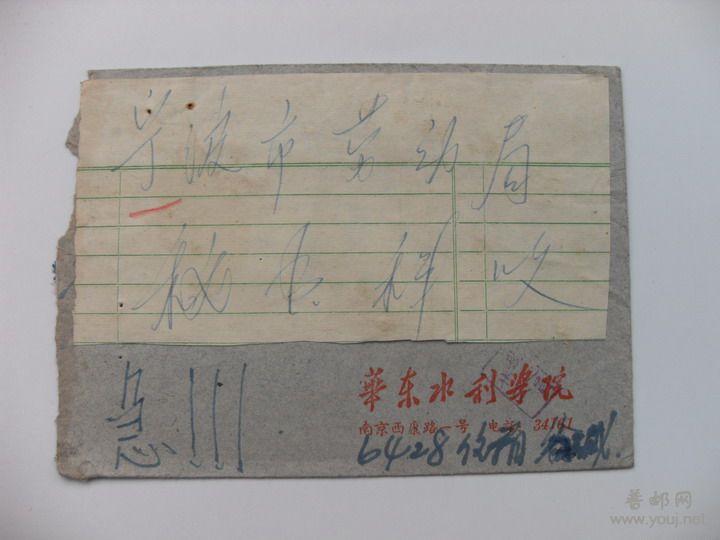 宁波市劳动局
秘书科收
急!!!
華东水利学院
南京西康路一号 电話 34101
6428信箱
普邮网
www.youj.net